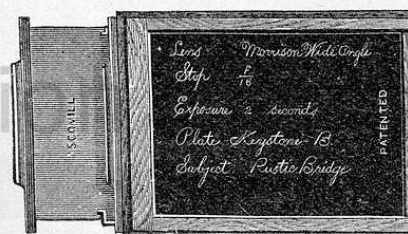 SCOVILL
Lens Morrison Wide Angle
Stop f/16
Exposure 2 seconds
Plate Keystone-B
Subject Rustic Bridge
PATENTED